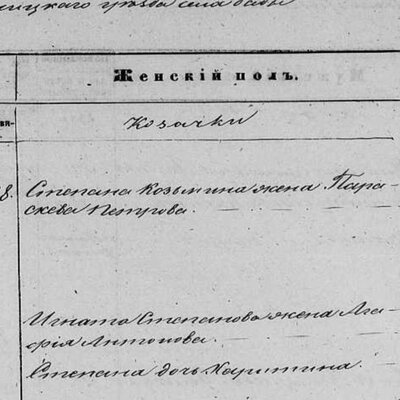 ницкаго уѣзда села Бабы
Женскій полъ.
Козачки
8. Степана Козьмина жена Пара-
скева Петрова.
Игната Степанова жена Ага-
фія Антонова.
Степана дочь Харитина.